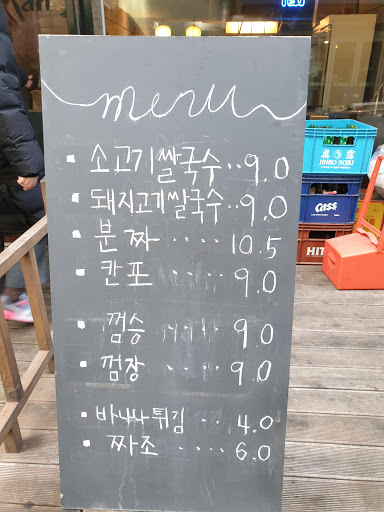 menu
▪ 소고기쌀국수..9.0
▪ 돼지고기쌀국수..9.0
▪ 분짜 .... 10.5
▪ 칸포 .... 9.0
▪ 껌승 .... 9.0
▪ 껌장 .... 9.0
▪ 바나나튀김 .. 4.0
▪ 짜조 .... 6.0
JINRO SOJU
Cass
HIT